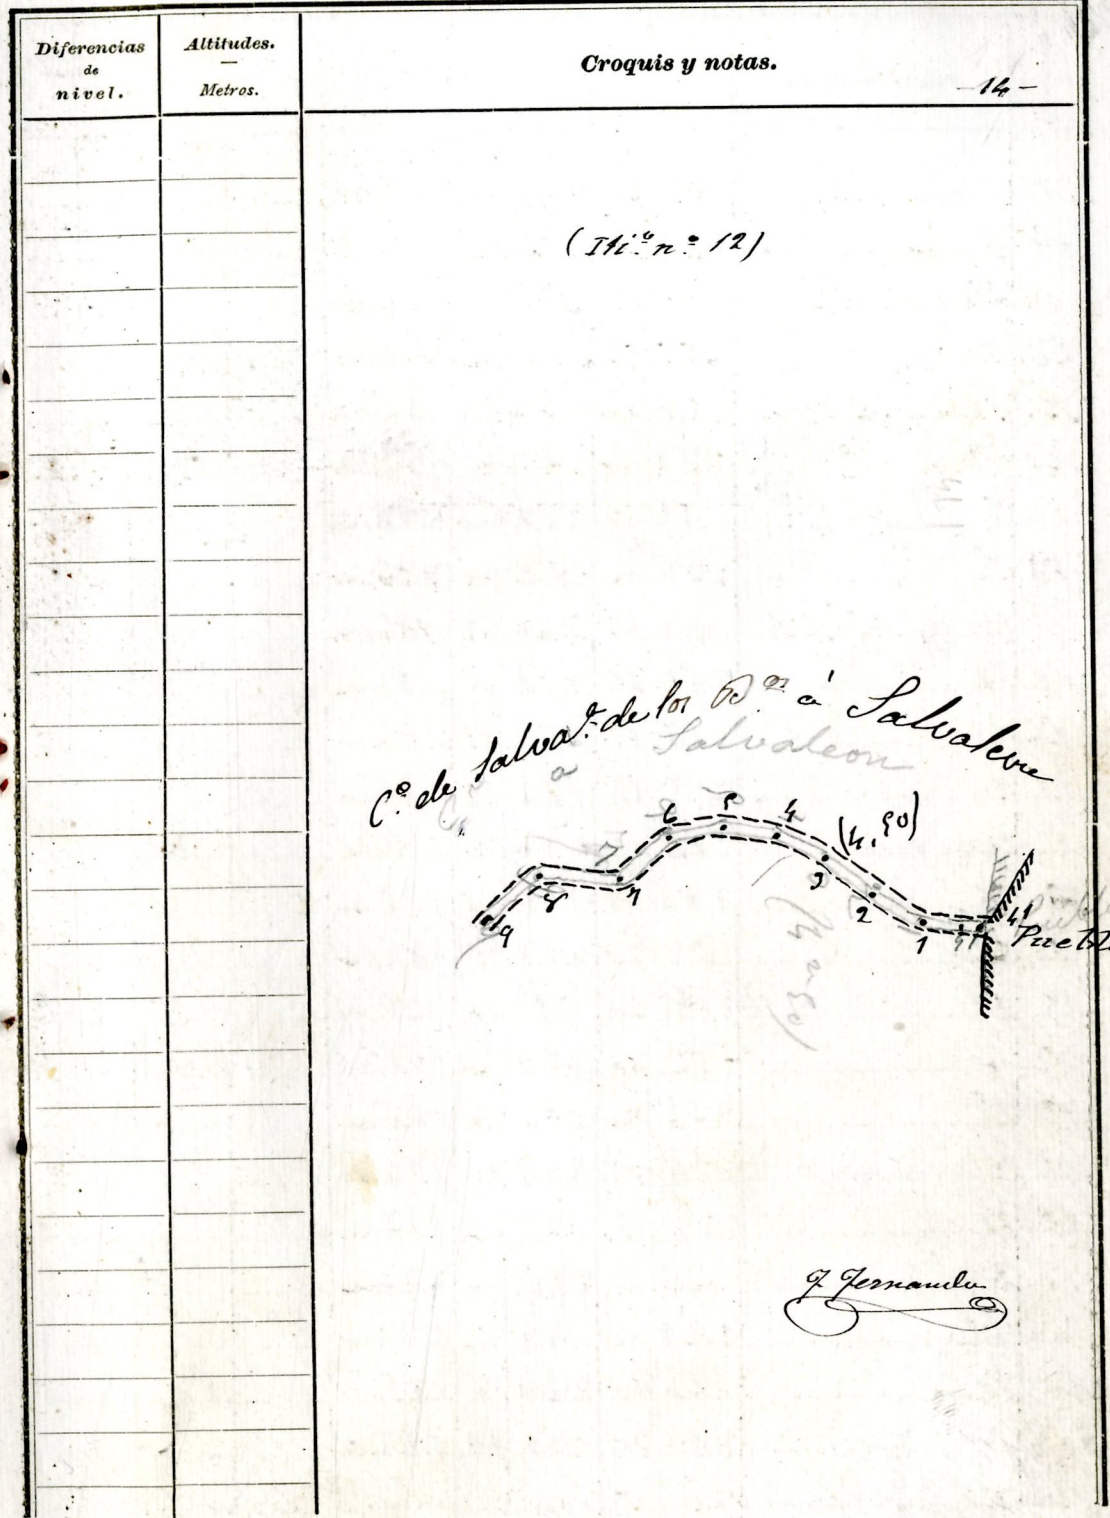 Diferencias
de
nivel.
Altitudes.
Metros.
Croquis y notas.
- 14 -
(Iti.º n.º 12)
C.º de Salva.r de los B.os á Salvaleon
Salvaleon
a
(4,50)
6 5 4
7 3
8 7 2
9 1
41
Pueblo
(4,50)
F Fernandez